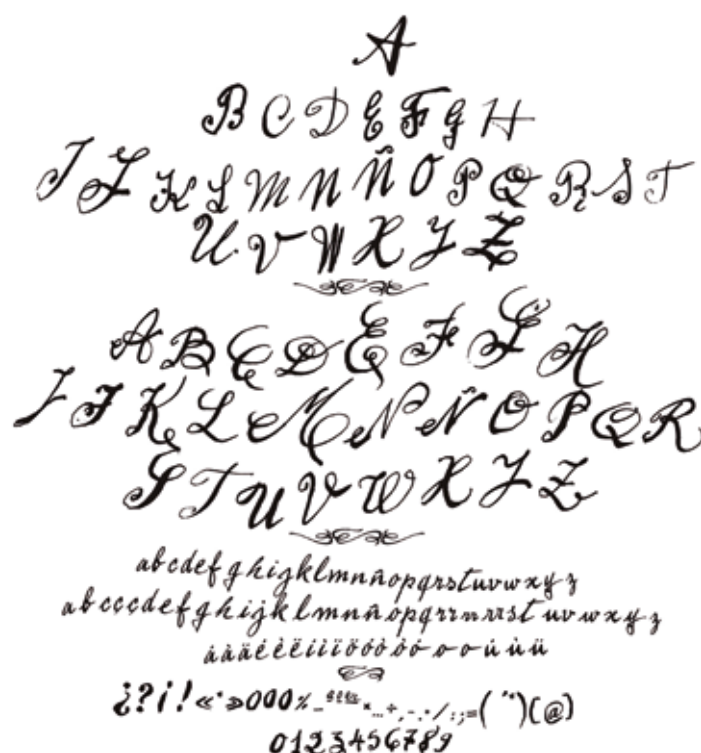 A
B C D E F G H
I J K L M N Ñ O P Q R S T
U V W X Y Z
A B C D E F G H
I J K L M N Ñ O P Q R
S T U V W X Y Z
a b c d e f g h i j k l m n ñ o p q r s t u v w x y z
a b c ç ç d e f g h i j k l m n ñ o p q r r n r r s t u v w x y z
á à ä é è ë í ì ï ö ó ò ó ò o o ú ù ü
¿ ? ¡ ! « · » 0 0 0 %
( ) ( @ )
0 1 2 3 4 5 6 7 8 9